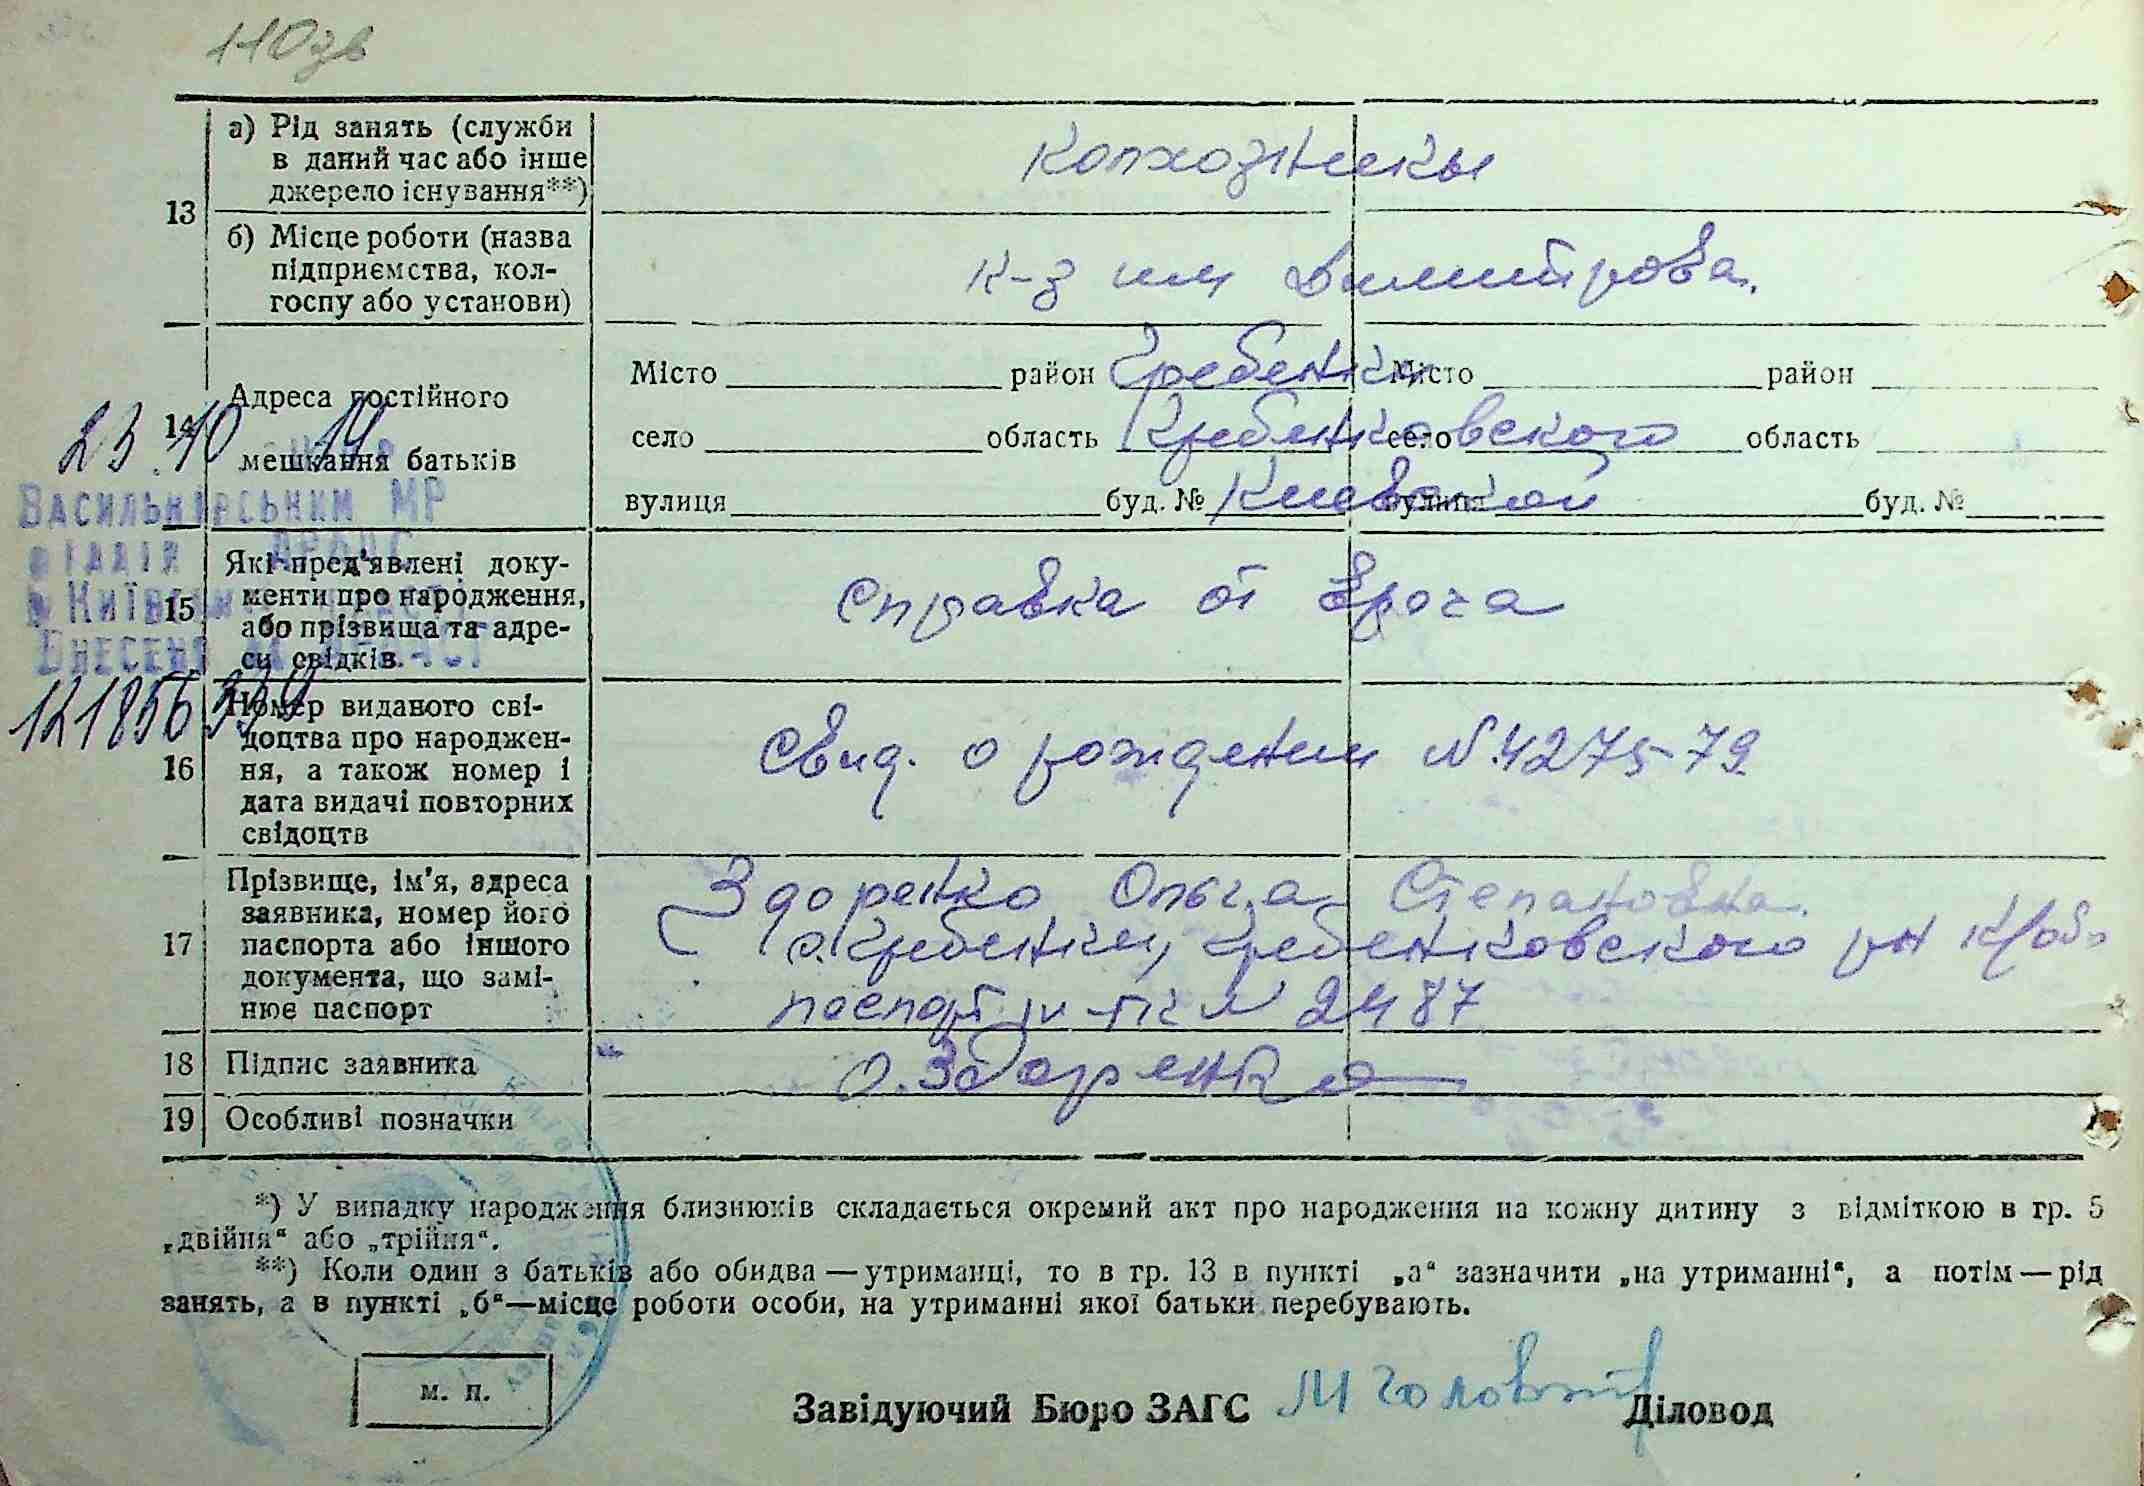 110зв
а) Рід занять (служби
в даний час або інше
джерело існування**)
колхозники
13
б) Місце роботи (назва
підприємства, кол-
госпу або установи)
к-з им Димитрова.
14
Адреса постійного
мешкання батьків
Місто район Гребенки Місто район
село область Гребенковского село область
вулиця буд. № Киевской вулиця буд. №
23.10 19
Васильківським МР
відділ ДРАЦС
Київ
Внесено
121856339
15
Які пред'явлені доку-
менти про народження,
або прізвища та адре-
си свідків.
Справка от врача
16
Номер виданого сві-
доцтва про народжен-
ня, а також номер і
дата видачі повторних
свідоцтв
Свид. о рождении № 4275-79
17
Прізвище, ім'я, адреса
заявника, номер його
паспорта або іншого
документа, що замі-
нює паспорт
Здоренко Ольга Степановна.
с. Гребенки, Гребенковского рн К/обл
паспорт № 2487
18 Підпис заявника
О. Здоренко
19 Особливі позначки
*) У випадку народження близнюків складається окремий акт про народження на кожну дитину з відміткою в гр. 5
„двійня“ або „трійня“.
**) Коли один з батьків або обидва — утриманці, то в гр. 13 в пункті „а“ зазначити „на утриманні“, а потім — рід
занять, а в пункті „б“—місце роботи особи, на утриманні якої батьки перебувають.
м. п.
Завідуючий Бюро ЗАГС Діловод